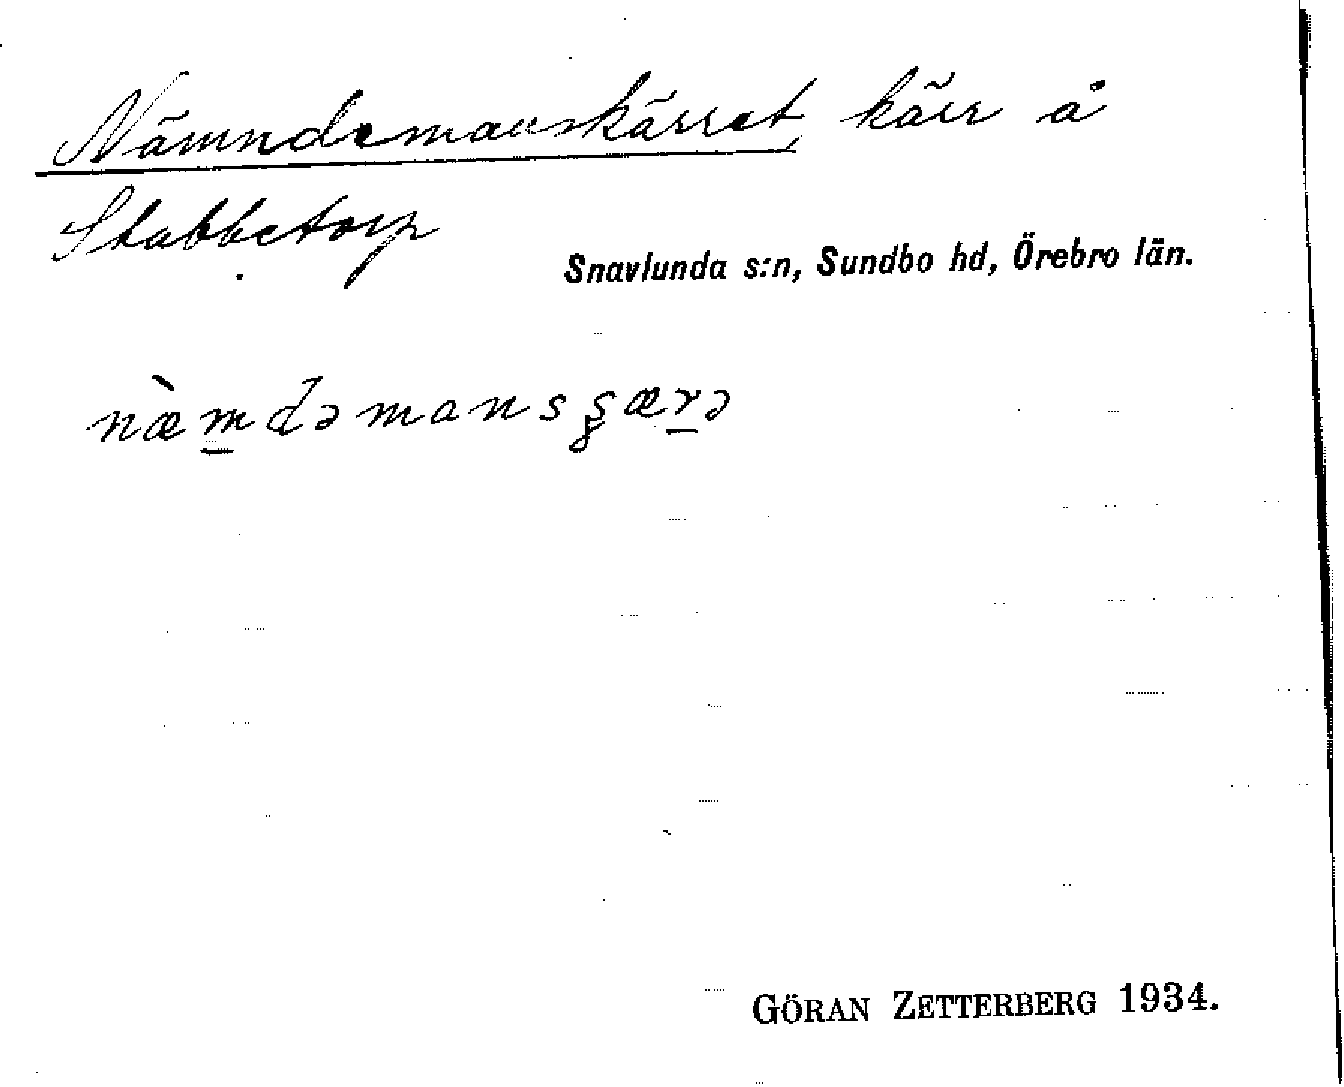 Nämndemanskärret, kärr å
Stabbetorp
Snavlunda s:n, Sundbo hd, Örebro län.
næ̀m̲dəmansʂær̲ə
GÖRAN ZETTERBERG 1934.